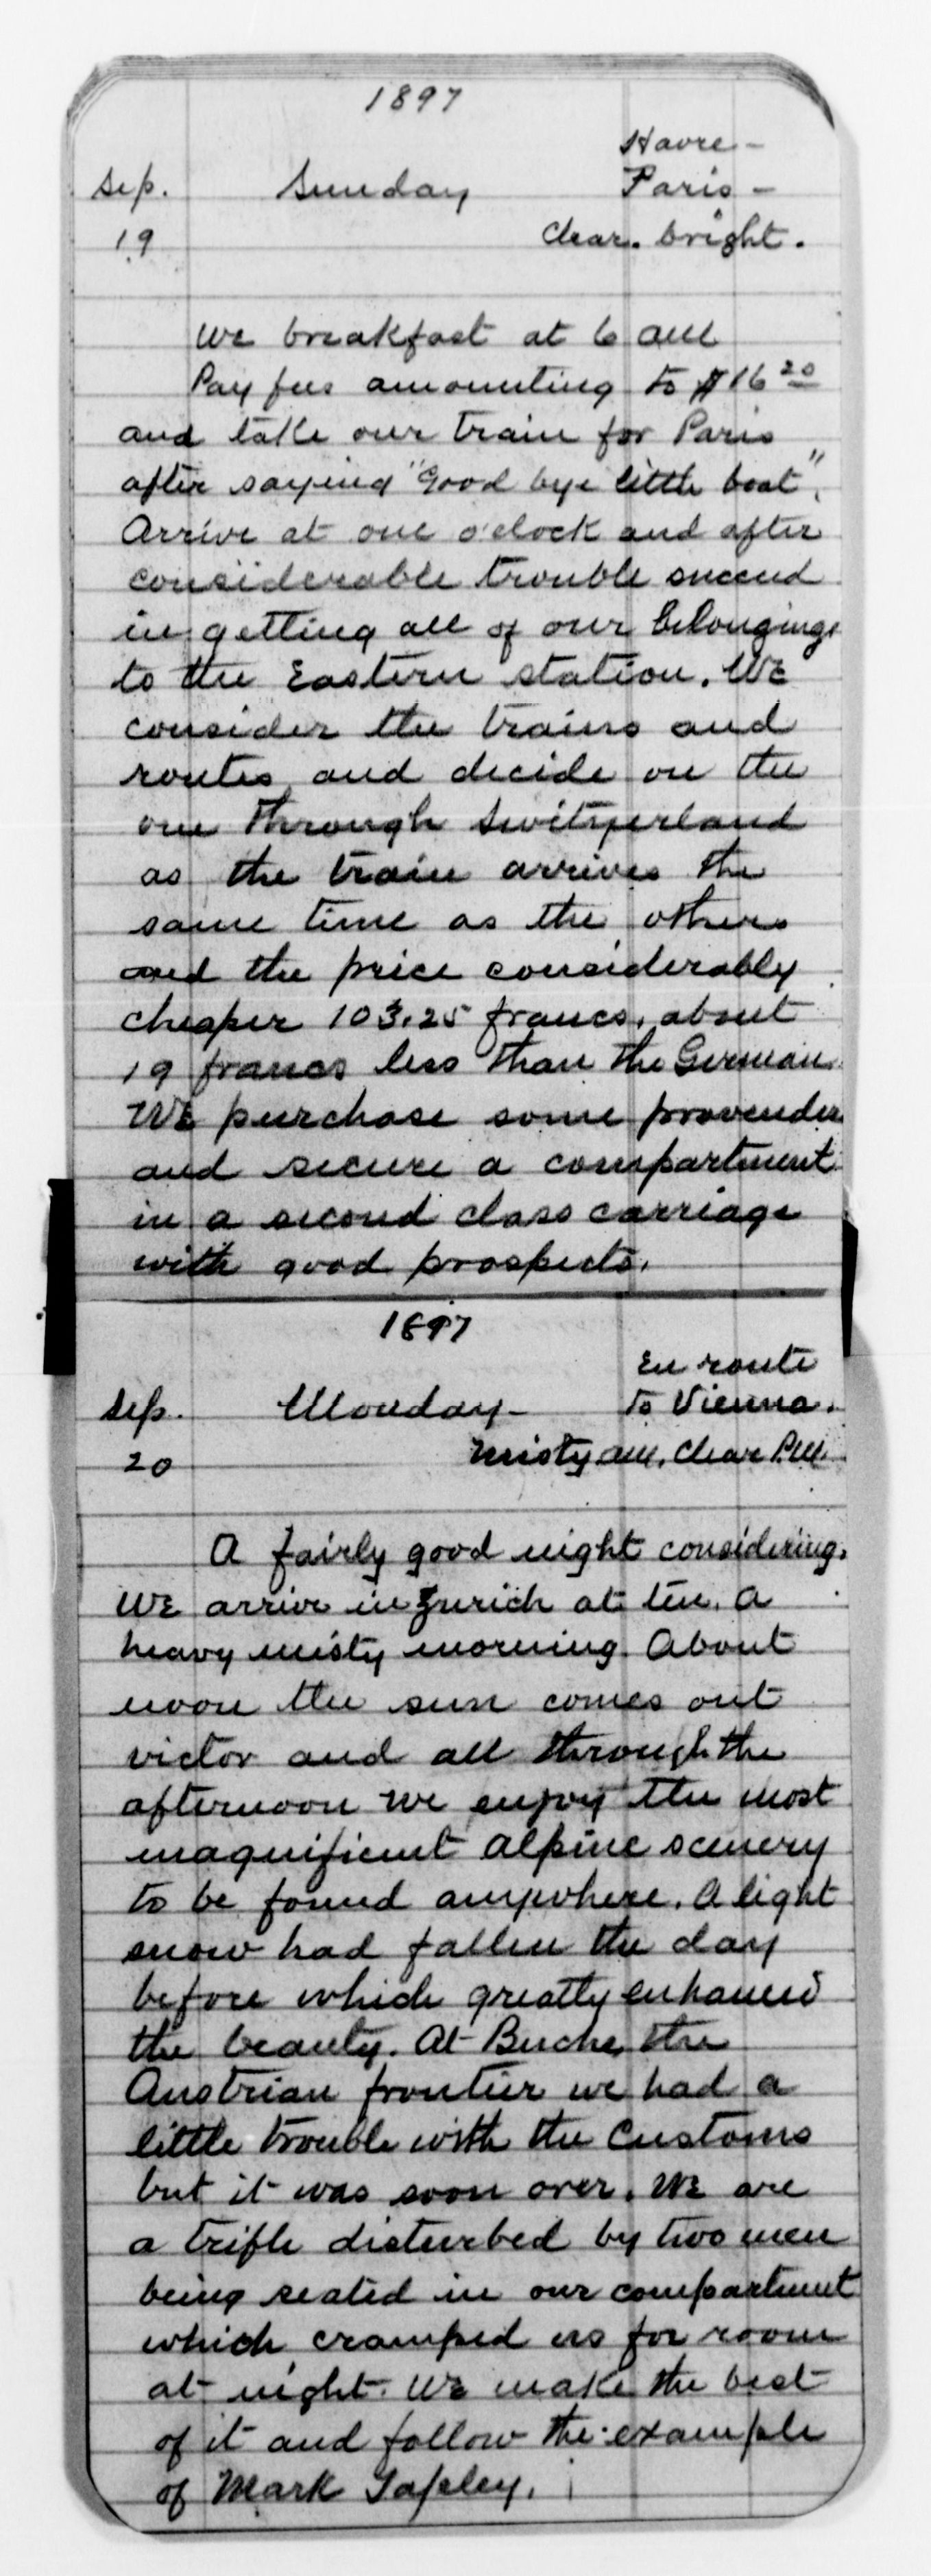 1897
Havre -
Sep. Sunday Paris -
19 Clear. bright.
We breakfast at 6 am
Pay fees amounting to $16 20
and take our train for Paris
after saying "Good bye little boat".
Arrive at one o'clock and after
considerable trouble succeed
in getting all of our belongings
to the Eastern station. We
consider the trains and
routes and decide on the
one through Switzerland
as the train arrives the
same time as the others
and the price considerably
cheaper 103.25 francs, about
19 francs less than the German.
We purchase some provender
and secure a compartment
in a second class carriage
with good prospects.
1897
En route
Sep. Monday - to Vienna.
20 Misty am. Clear P.M.
A fairly good night considering.
We arrive in Zurich at ten. A
heavy misty morning. About
noon the sun comes out
victor and all through the
afternoon we enjoy the most
magnificent Alpine scenery
to be found anywhere. A light
snow had fallen the day
before which greatly enhanced
the beauty. At Buchs, the
Austrian frontier we had a
little trouble with the Customs
but it was soon over. We are
a trifle disturbed by two men
being seated in our compartment
which cramped us for room
at night. We make the best
of it and follow the example
of Mark Tapley.